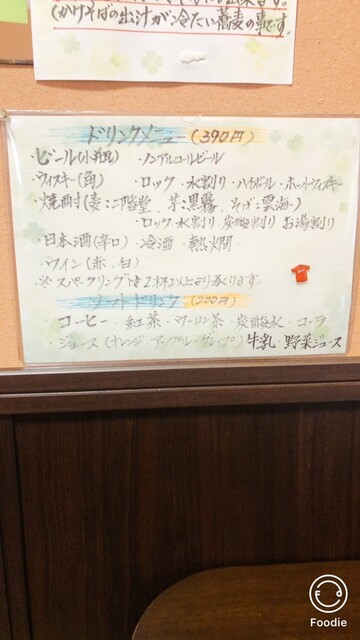 (かけそばの出汁が冷たい蕎麦の事です。
ドリンクメニュー (390円)
・ビール(小瓶) ・ノンアルコールビール
・ウィスキー(角) ・ロック・水割り・ハイボール・ホットウィスキー
・焼酎(麦:二階堂 芋:黒霧 そば:雲海)
・ロック・水割り・炭酸割り・お湯割り
・日本酒(辛口)・冷酒・熱燗
・ワイン(赤・白)
※スパークリングは2杯以上より承ります。
ソフトドリンク (200円)
コーヒー・紅茶・ウーロン茶・炭酸水・コーラ
・ジュース(オレンジ・アップル・グレープ)牛乳・野菜ジュース
Foodie